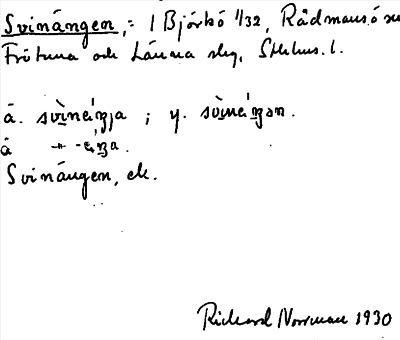 Svinängen, = 1 Björkö 1/32, Rådmansö sn
Frötuna och Länna slg, Sthlms. l.
ä. svìnei̯ŋja ; y. svìnei̯ŋən.
ä -"- -ei̯ŋa.
Svinängen, ek.
Rickard Norrman 1930